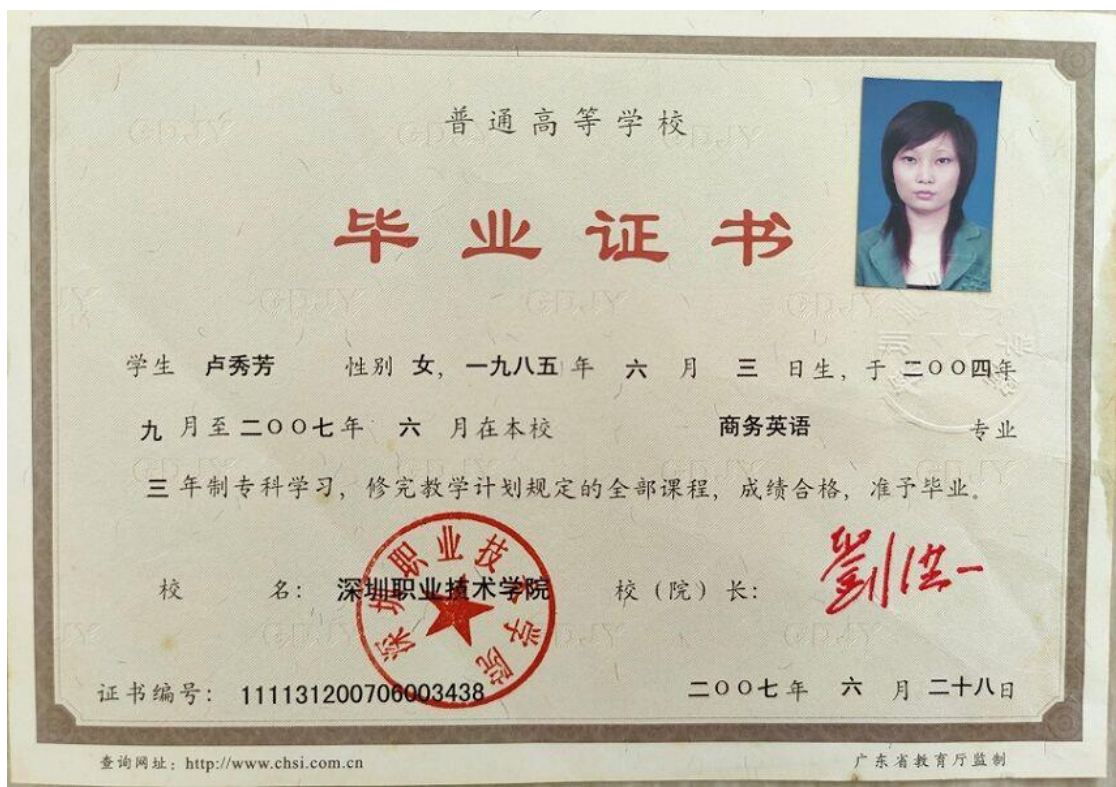 普通高等学校
毕业证书
学生 卢秀芳 性别 女，一九八五年 六 月 三 日生，于 二〇〇四年
九 月至 二〇〇七年 六 月在本校 商务英语 专业
三 年制专科学习，修完教学计划规定的全部课程，成绩合格，准予毕业。
校 名： 深圳职业技术学院 校（院）长： 劉洪一
深圳职业技术学院
证书编号： 111131200706003438 二〇〇七年 六 月 二十八日
查询网址：http://www.chsi.com.cn 广东省教育厅监制
GDJY